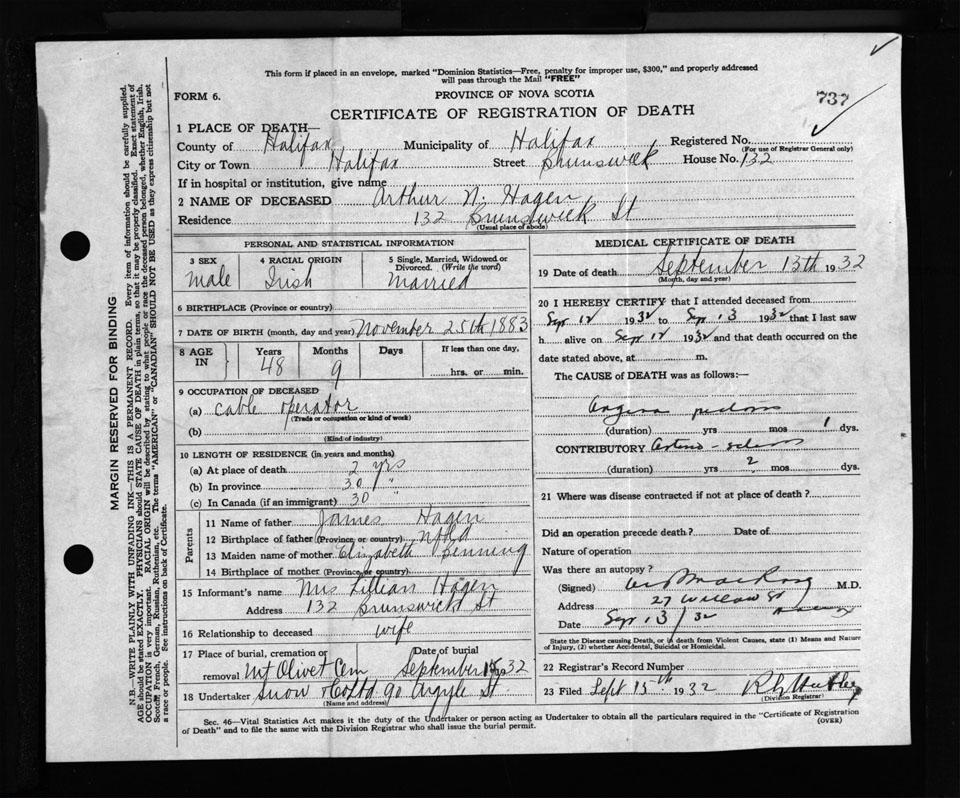 This form if placed in an envelope, marked "Dominion Statistics—Free, penalty for improper use, $300," and properly addressed
will pass through the Mail "FREE"
FORM 6.
PROVINCE OF NOVA SCOTIA
737
CERTIFICATE OF REGISTRATION OF DEATH
1 PLACE OF DEATH—
County of Halifax Municipality of Halifax Registered No.
(For use of Registrar General only)
City or Town Halifax Street Brunswick House No. 132
If in hospital or institution, give name
2 NAME OF DECEASED Arthur N. Hagen
Residence 132 Brunswick St
(Usual place of abode)
PERSONAL AND STATISTICAL INFORMATION
3 SEX 4 RACIAL ORIGIN 5 Single, Married, Widowed or
Divorced. (Write the word)
Male Irish Married
6 BIRTHPLACE (Province or country)
7 DATE OF BIRTH (month, day and year) November 25th 1883
8 AGE IN Years Months Days If less than one day,
48 9 hrs. or min.
9 OCCUPATION OF DECEASED
(a) cable operator
(Trade or occupation or kind of work)
(b)
(Kind of industry)
10 LENGTH OF RESIDENCE (in years and months)
(a) At place of death 2 yrs
(b) In province 30 "
(c) In Canada (if an immigrant) 30 "
Parents
11 Name of father James Hagen
12 Birthplace of father (Province or country) Nfld
13 Maiden name of mother Elizabeth Benning
14 Birthplace of mother (Province or country)
15 Informant's name Mrs Lillian Hagen
Address 132 Brunswick St
16 Relationship to deceased wife
17 Place of burial, cremation or Date of burial
removal Mt Olivet Cem September 32
18 Undertaker Snow & Co Ltd 90 Argyle St
(Name and address)
MEDICAL CERTIFICATE OF DEATH
19 Date of death September 13th 1932
(Month, day and year)
20 I HEREBY CERTIFY that I attended deceased from
Sept 12 1932 to Sept 13 1932 that I last saw
h alive on Sept 12 1932 and that death occurred on the
date stated above, at m.
The CAUSE of DEATH was as follows:—
Angina pectoris
(duration) yrs mos 1 dys.
CONTRIBUTORY Arterio-sclerosis
(duration) yrs 2 mos dys.
21 Where was disease contracted if not at place of death?
Did an operation precede death? Date of
Nature of operation
Was there an autopsy?
(Signed) M.D.
Address 27 Willow St
Date Sept 13/32
State the Disease causing Death, or in death from Violent Causes, state (1) Means and Nature
of Injury, (2) whether Accidental, Suicidal or Homicidal.
22 Registrar's Record Number
23 Filed Sept 15th 1932
(Division Registrar)
Sec. 46—Vital Statistics Act makes it the duty of the Undertaker or person acting as Undertaker to obtain all the particulars required in the "Certificate of Registration
of Death" and to file the same with the Division Registrar who shall issue the burial permit. (OVER)
MARGIN RESERVED FOR BINDING
N.B.—WRITE PLAINLY WITH UNFADING INK—THIS IS A PERMANENT RECORD. Every item of information should be carefully supplied.
AGE should be stated EXACTLY. PHYSICIANS should STATE CAUSE OF DEATH in plain terms, so that it may be properly classified. Exact statement of
OCCUPATION is very important. RACIAL ORIGIN will be described by stating to what people or race the deceased person belonged, whether English, Irish,
Scotch, French, German, Russian, Ruthenian, etc. The terms "AMERICAN" or "CANADIAN" SHOULD NOT BE USED as they express citizenship but not
a race or people. See instructions on back of Certificate.